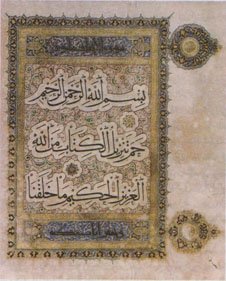 بسم الله الرحمن الرحيم
حم تنزيل الكتاب من الله
العزيز الحكيم ما خلقنا